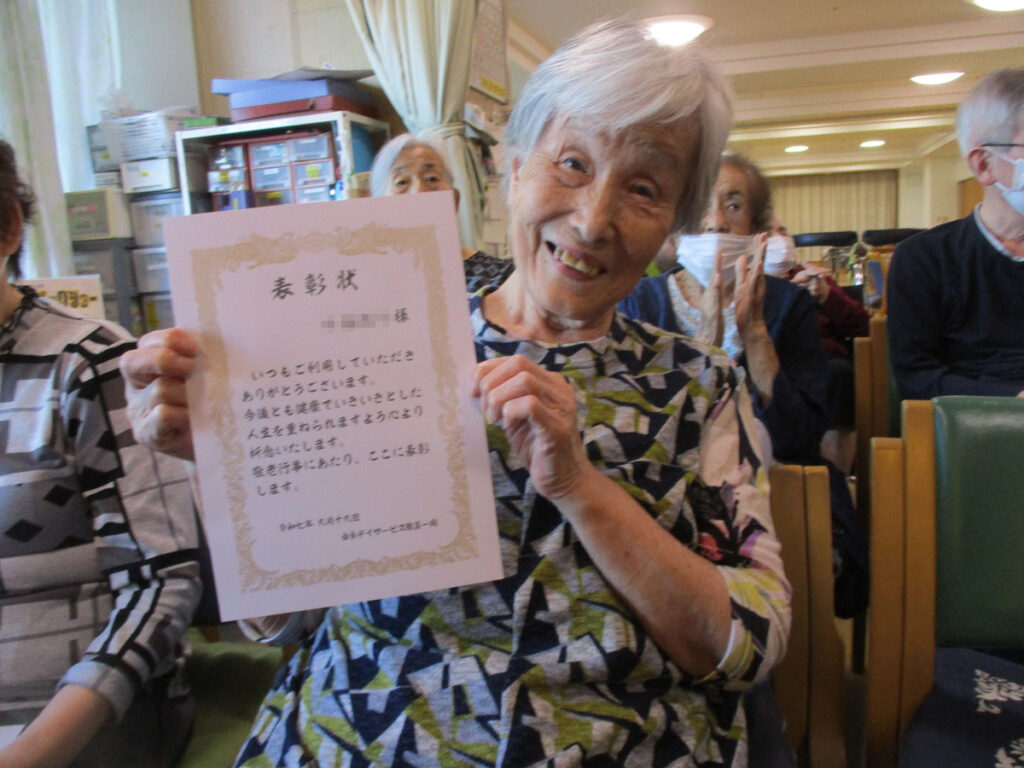 表彰状
様
いつもご利用していただき
ありがとうございます。
今後とも健康でいきいきとした
人生を重ねられますよう心より
祈念いたします。
敬老行事にあたり、ここに表彰
します。
令和七年 九月十六日
デイサービス職員一同